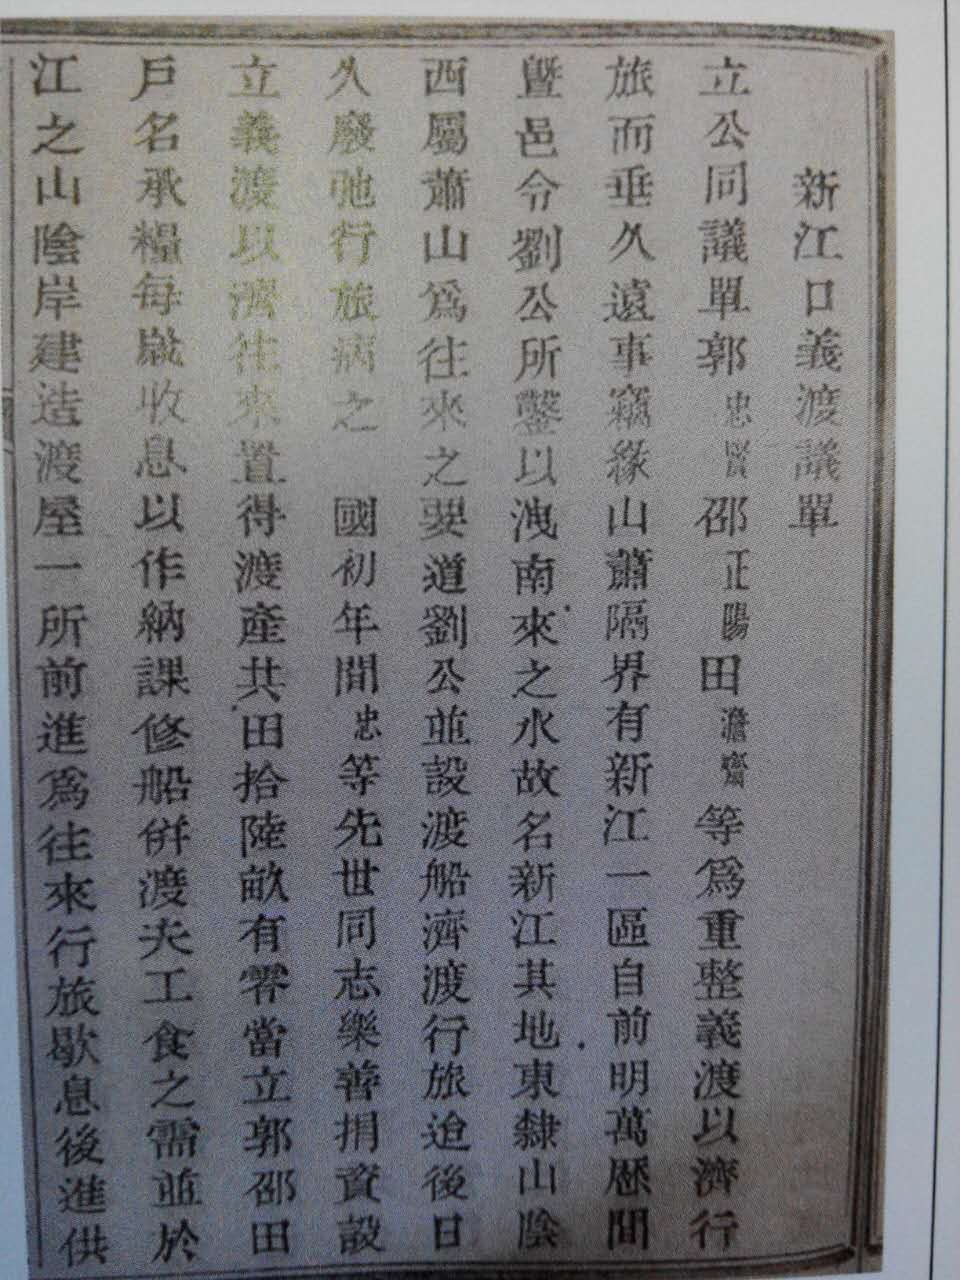 新江口義渡議單
立公同議單郭忠賢邵正陽田瀶齋等爲重整義渡以濟行
旅而垂久遠事竊緣山蕭隔界有新江一區自前明萬歷間
曁邑令劉公所鑿以洩南來之水故名新江其地東隸山陰
西屬蕭山爲往來之要道劉公並設渡船濟渡行旅迨後日
久廢弛行旅病之 國初年間忠等先世同志樂善捐資設
立義渡以濟往來置得渡產共田拾陸畝有零當立郭邵田
戶名承糧每歲收息以作納課修船併渡夫工食之需並於
江之山陰岸建造渡屋一所前進爲往來行旅歇息後進供